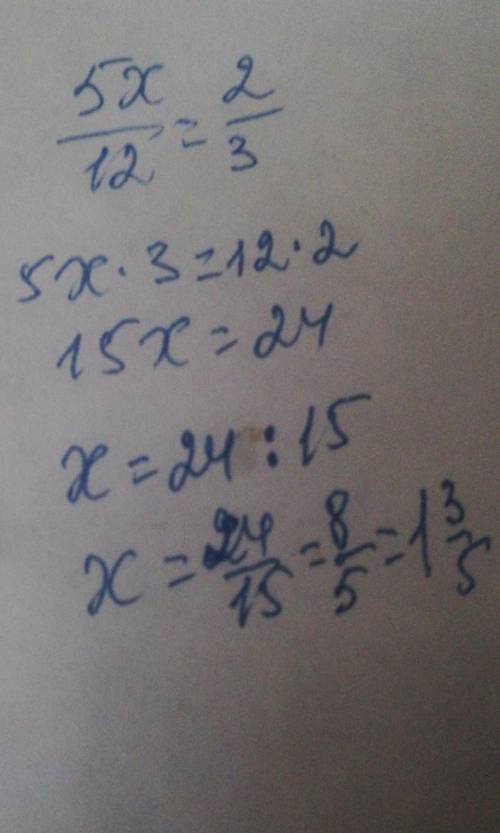 5x/12 = 2/3
5x · 3 = 12 · 2
15x = 24
x = 24 : 15
x = 24/15 = 8/5 = 1 3/5